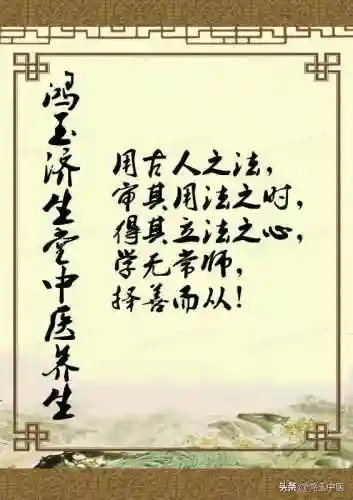 鸿玉济生堂中医养生
用古人之法，
审其用法之时，
得其立法之心，
学无常师，
择善而从！
头条@鸿玉中医